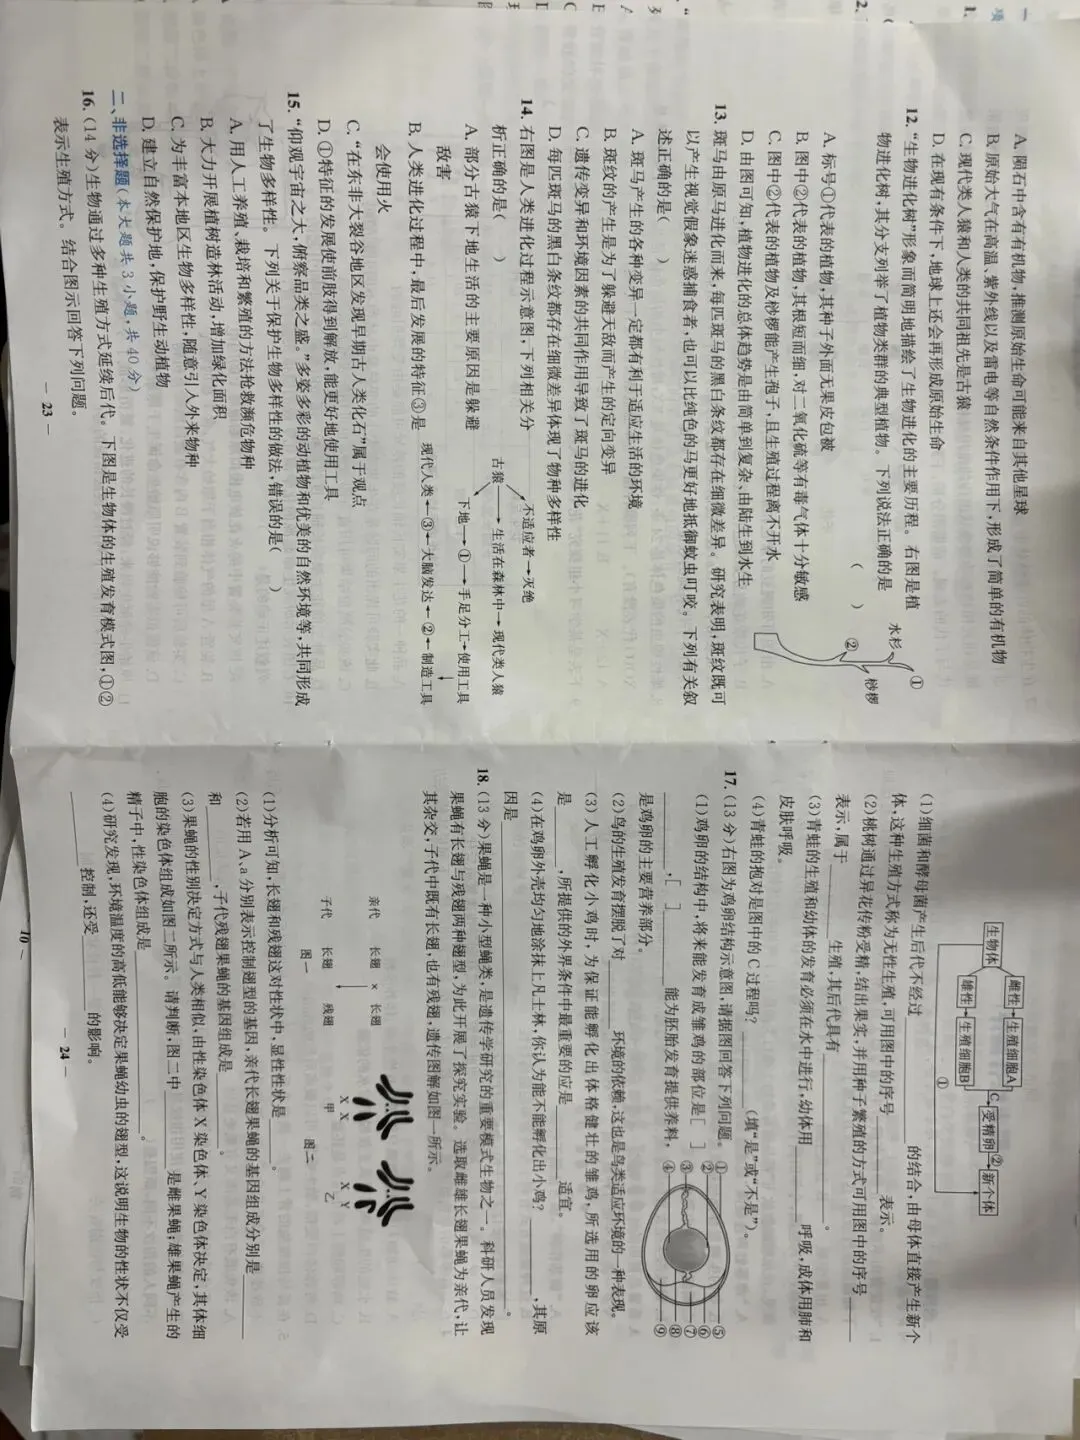 A. 陨石中含有有机物,推测原始生命可能来自其他星球
B. 原始大气在高温、紫外线以及雷电等自然条件作用下,形成了简单的有机物
C. 现代类人猿和人类的共同祖先是古猿
D. 在现有条件下,地球上还会再形成原始生命
12. “生物进化树”形象而简明地描绘了生物进化的主要历程。右图是植
物进化树,其分支列举了植物类群的典型植物。下列说法正确的是
( )
水杉
①
②
桫椤
A. 标号①代表的植物,其种子外面无果皮包被
B. 图中②代表的植物,其根短而细,对二氧化硫等有毒气体十分敏感
C. 图中②代表的植物及桫椤能产生孢子,且生殖过程离不开水
D. 由图可知,植物进化的总体趋势是由简单到复杂、由陆生到水生
13. 斑马由原马进化而来,每匹斑马的黑白条纹都存在细微差异。研究表明,斑纹既可
以产生视觉假象迷惑捕食者,也可以比纯色的马更好地抵御蚊虫叮咬。下列有关叙
述正确的是( )
A. 斑马产生的各种变异一定都有利于适应生活的环境
B. 斑纹的产生是为了躲避天敌而产生的定向变异
C. 遗传变异和环境因素的共同作用导致了斑马的进化
D. 每匹斑马的黑白条纹都存在细微差异体现了物种多样性
14. 右图是人类进化过程示意图,下列相关分
析正确的是( )
不适应者→灭绝
古猿→生活在森林中→现代类人猿
下地→①→手足分工→使用工具
现代人类←③←大脑发达←②←制造工具
A. 部分古猿下地生活的主要原因是躲避
敌害
B. 人类进化过程中,最后发展的特征③是
会使用火
C. “在东非大裂谷地区发现早期古人类化石”属于观点
D. ①特征的发展使前肢得到解放,能更好地使用工具
15. “仰观宇宙之大,俯察品类之盛。”多姿多彩的动植物和优美的自然环境等,共同形成
了生物多样性。下列关于保护生物多样性的做法,错误的是( )
A. 用人工养殖、栽培和繁殖的方法抢救濒危物种
B. 大力开展植树造林活动,增加绿化面积
C. 为丰富本地区生物多样性,随意引入外来物种
D. 建立自然保护地,保护野生动植物
二、非选择题(本大题共 3 小题,共 40 分)
16. (14 分)生物通过多种生殖方式延续后代。下图是生物体的生殖发育模式图,①②
表示生殖方式。结合图示回答下列问题。
— 23 —
雌性→生殖细胞A
生物体
C
受精卵
②
新个体
雄性→生殖细胞B
①
(1)细菌和酵母菌产生后代不经过________的结合,由母体直接产生新个
体,这种生殖方式称为无性生殖,可用图中的序号________表示。
(2)桃树通过异花传粉受精,结出果实,并用种子繁殖的方式可用图中的序号____
表示,属于________生殖,其后代具有________。
(3)青蛙的生殖和幼体的发育必须在水中进行,幼体用________呼吸,成体用肺和
皮肤呼吸。
(4)青蛙的抱对是图中的 C 过程吗?________(填“是”或“不是”)。
17. (13 分)右图为鸡卵结构示意图,请据图回答下列问题。
①
②
③
④
⑤
⑥
⑦
⑧
⑨
(1)鸡卵的结构中,将来能发育成雏鸡的部位是[ ]
________,[ ]________能为胚胎发育提供养料,
是鸡卵的主要营养部分。
(2)鸟的生殖发育摆脱了对________环境的依赖,这也是鸟类适应环境的一种表现。
(3)人工孵化小鸡时,为保证能孵化出体格健壮的雏鸡,所选用的卵应该
是________,所提供的外界条件中最重要的应是________适宜。
(4)在鸡卵外壳均匀地涂抹上凡士林,你认为能不能孵化出小鸡?________,其原
因是________。
18. (13 分)果蝇是一种小型蝇类,是遗传学研究的重要模式生物之一。科研人员发现
果蝇有长翅与残翅两种翅型,为此开展了探究实验。选取雌雄长翅果蝇为亲代,让
其杂交,子代中既有长翅,也有残翅,遗传图解如图一所示。
亲代 长翅 × 长翅
子代 长翅 残翅
图一
X X
甲
X Y
乙
图二
(1)分析可知,长翅和残翅这对性状中,显性性状是________。
(2)若用 A、a 分别表示控制翅型的基因,亲代长翅果蝇的基因组成分别是________
和________,子代残翅果蝇的基因组成是________。
(3)果蝇的性别决定方式与人类相似,由性染色体 X 染色体、Y 染色体决定,其体细
胞的染色体组成如图二所示。请判断,图二中________是雌果蝇;雄果蝇产生的
精子中,性染色体组成是________。
(4)研究发现,环境温度的高低能够决定果蝇幼虫的翅型,这说明生物的性状不仅受
________控制,还受________的影响。
— 24 —